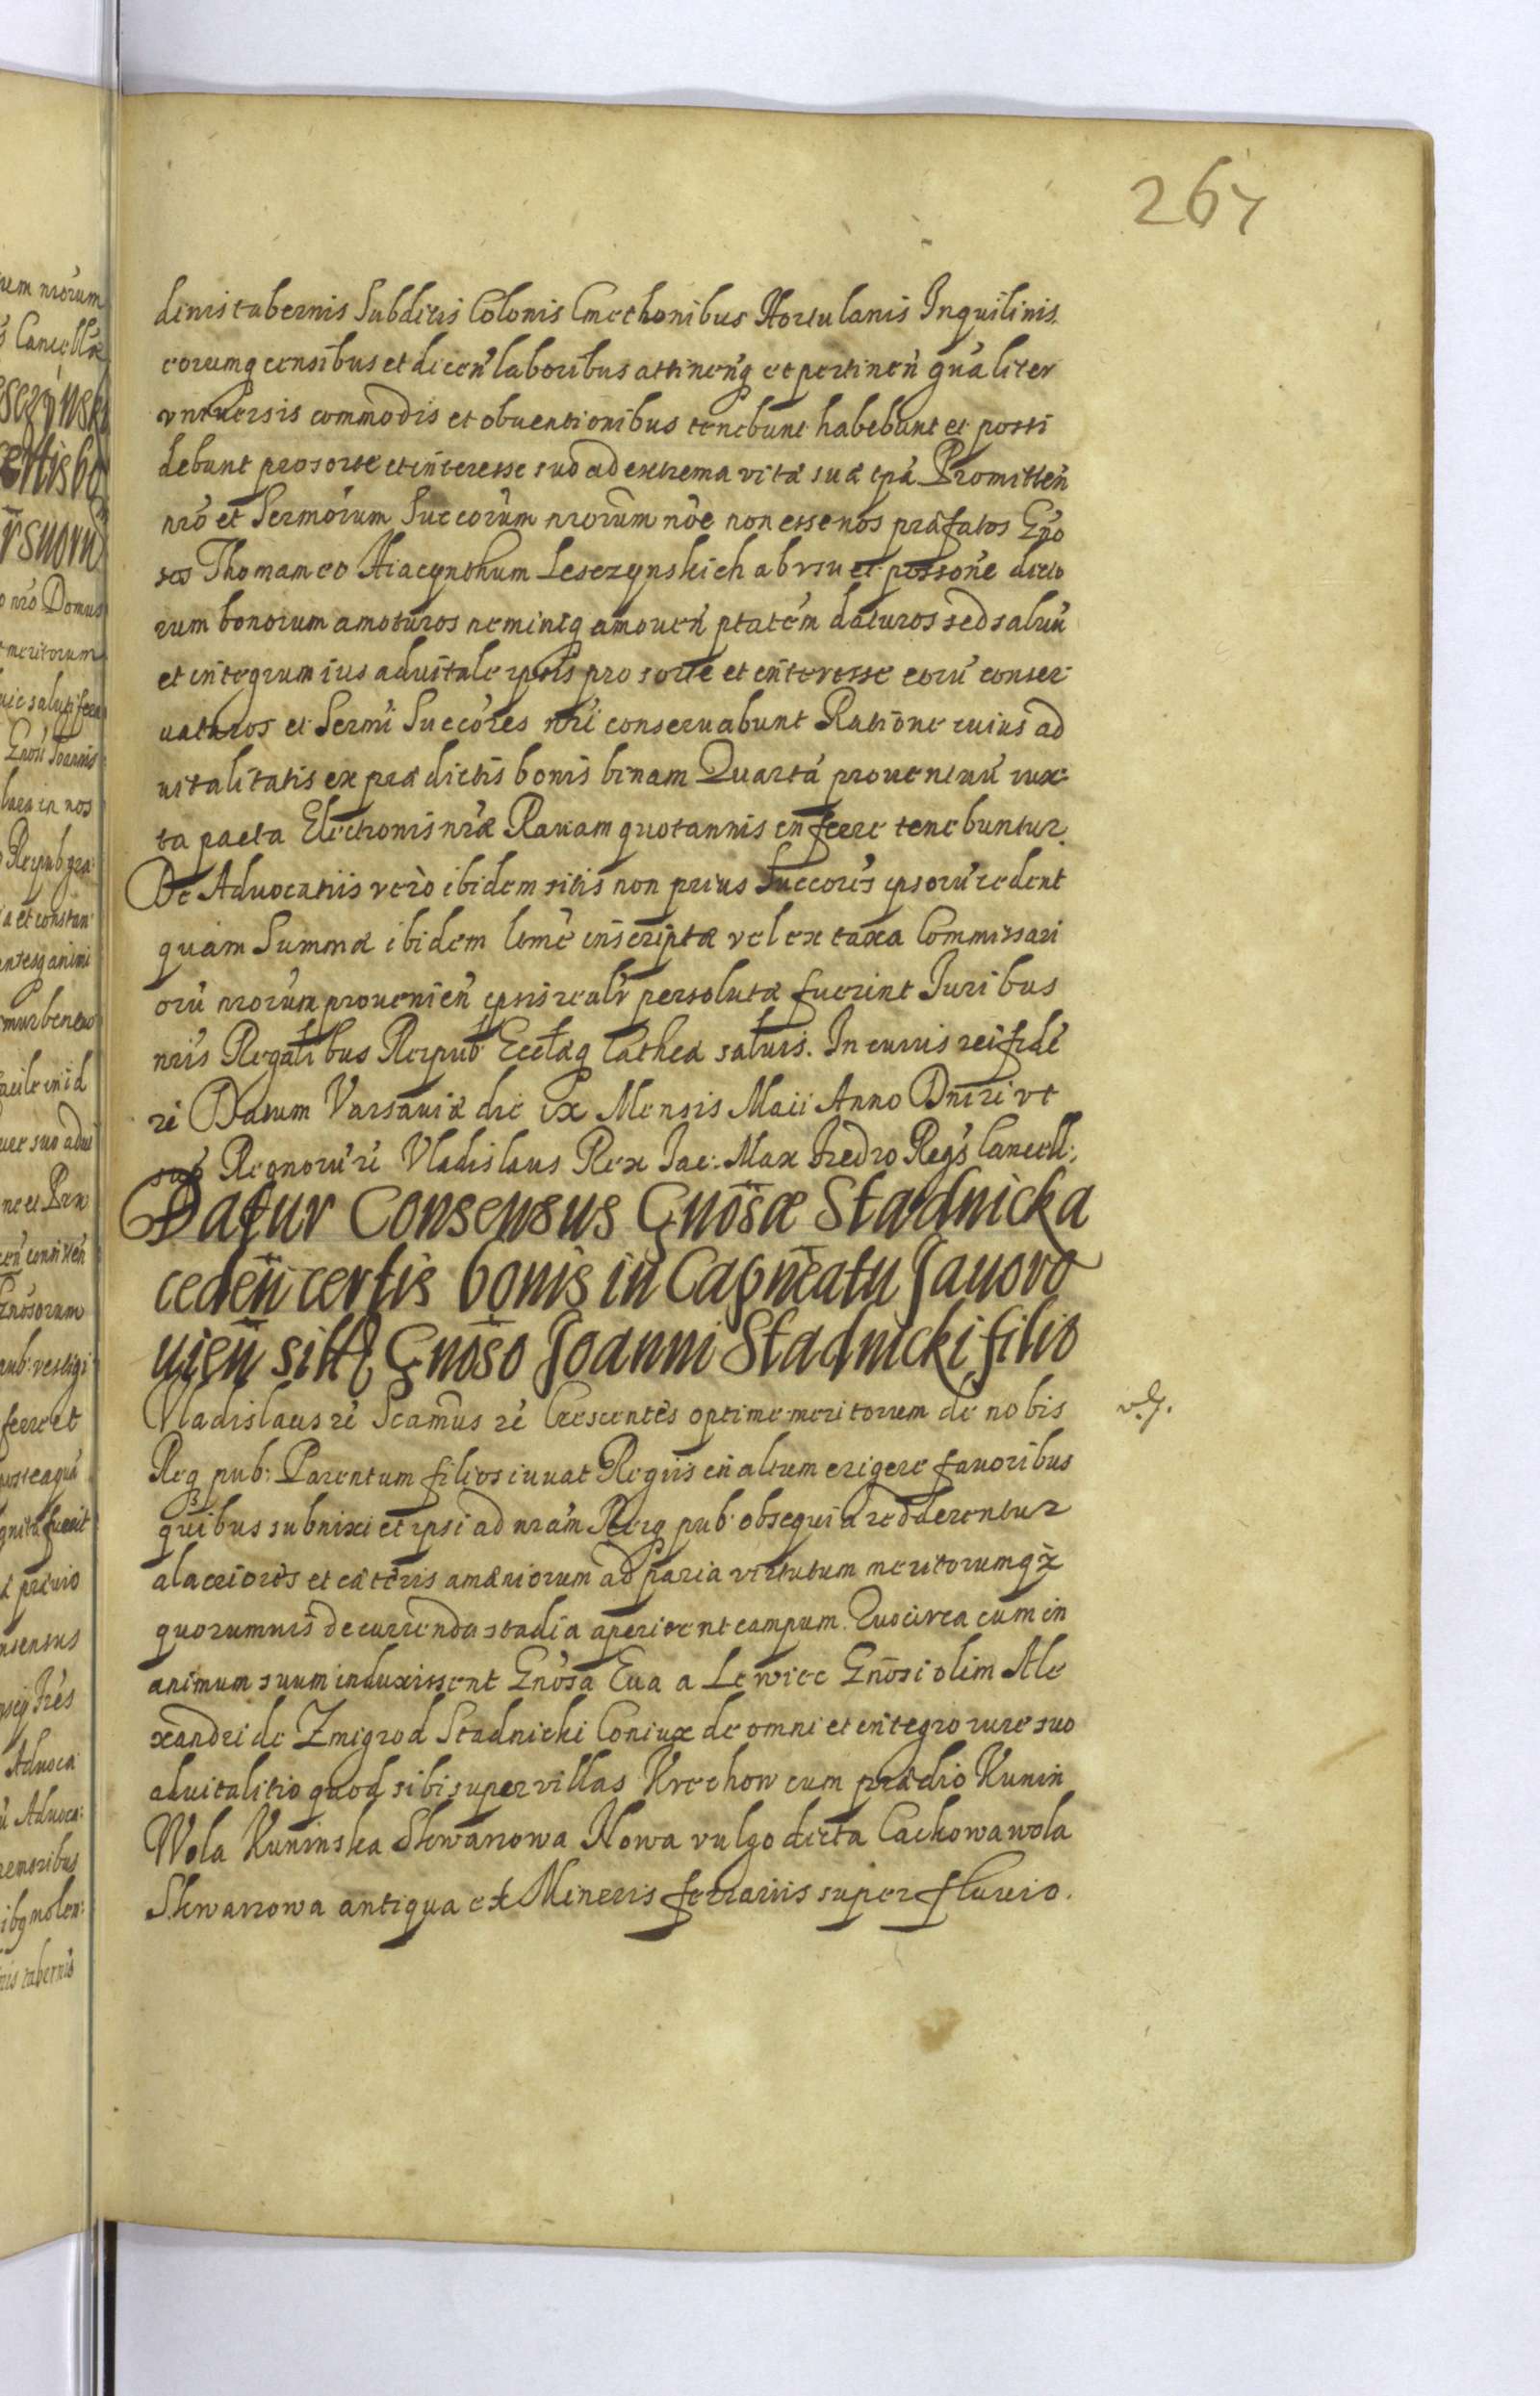 267
denis tabernis Subditis Colonis Cmethonibus Hortulanis Inquilinis
eorumq censibus et dicen laboribus attinenq et pertinen gnaliter
vniuersis commodis et obuentionibus tenebunt habebunt et possi
debunt pro sorte et interesse suo ad extrema vitæ suæ tpa Promitten
nro et Sermorum Succorum nrorum noe non esse nos præfatos Gno
sos Thomam eo Hiacynthum Lesczynskich ab vsu et possone dicto
rum bonorum amoturos neminiq amouen ptatem daturos sed saluu
et integrum ius aduitale ipsis pro sorte et interesse eoru conser
uaturos et Sermi Succores nri conseruabunt Ratione cuius ad
uitalitatis ex prædictis bonis binam Quarta prouentuu iux
ta pacta Electionis nræ Rauam quotannis inferre tenebuntur
De Aduocatiis verò ibidem sitis non prius Succores ipsoru cedent
quam Summæ ibidem ltme inscriptæ vel ex taxa Commissari
oru nrorum prouenien ipsis realr persolutæ fuerint Juribus
nris Regalibus Reipub: Ecclæq Cathcæ saluis. In cuius rei fide
rê Datum Varsauiæ die ix Mensis Maii Anno Dni rê vt
sup Regnoru rê Vladislaus Rex Jac: Max Fredro Regs Cancell:
Datur Consensus Gnosæ Stadnicka
ceden certis bonis in Capneatu Jauoro
uien sitt Gnoso Joanni Stadnicki filio
Vladislaus rê Scamus rê Crescentes optime meritorum de nobis
Req pub: Parentum filios iuuat Regiis in altum erigere fauoribus
quibus subnixi et ipsi ad nram Reiq pub: obsequia redderentur
alacriores et cæteris amæniorum ad paria virtutum meritorumq
quorumuis decurrenda stadia aperirent campum. Quocirca cum in
animum suum induxissent Gnosa Eua a Lewicc Gnosi olim Ale
xandri de Zmigrod Stadnicki Coniux de omni et integro iure suo
aduitalitio quod sibi super villas Krechow cum prædio Kunin
Wola Kuninska Skwarrowa Nowa vulgo dicta Cackowawola
Skwarrowa antiqua et Mineris ferrariis super fluuio.